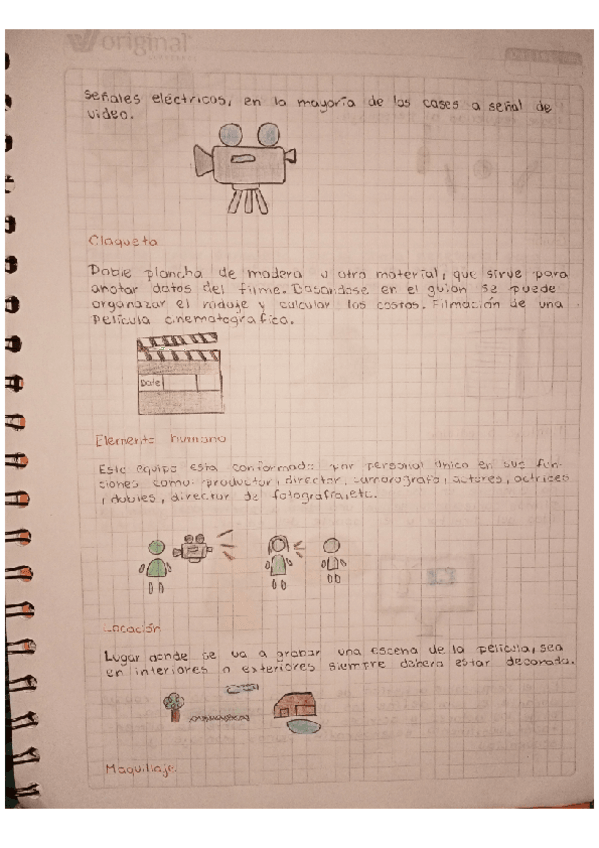 original
señales eléctricos, en la mayoría de los cases a señal de
video.
Claqueta
Doble plancha de madera u otro material, que sirve para
anotar datos del filme. Basandose en el guion se puede
organazar el rodaje y calcular los costos. Filmación de una
Pelicula cinematografica.
Date
Elemento humano
Este equipo esta conformado por personal único en sus fun-
siones como: productor, director, camarografo, actores, actrices
, dobles, director de fotografia, etc.
Locación
Lugar donde se va a grabar una escena de la pelicula, sea
en interiores o exteriores siempre debera estar decorada.
Maquillaje.